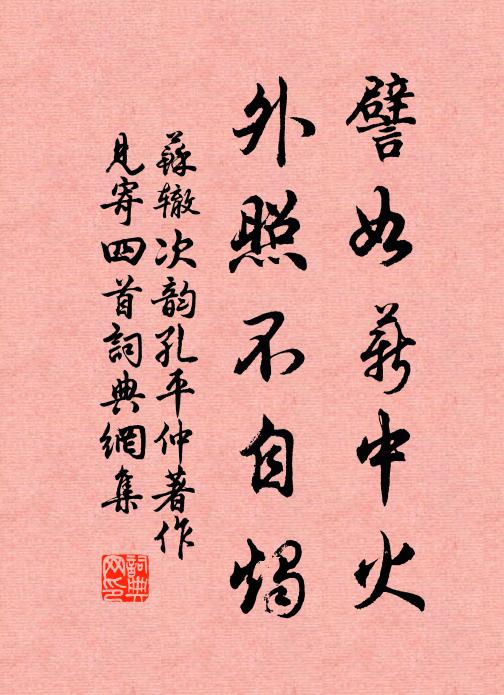 譬如薪中火
外照不自燭
蘇辙次韵孔平仲著作
見寄四首詞典網集
詞典网印